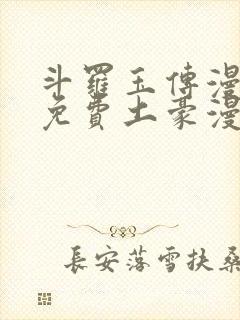 斗羅玉傳漫
免費土豪漫
長安落雪扶桑